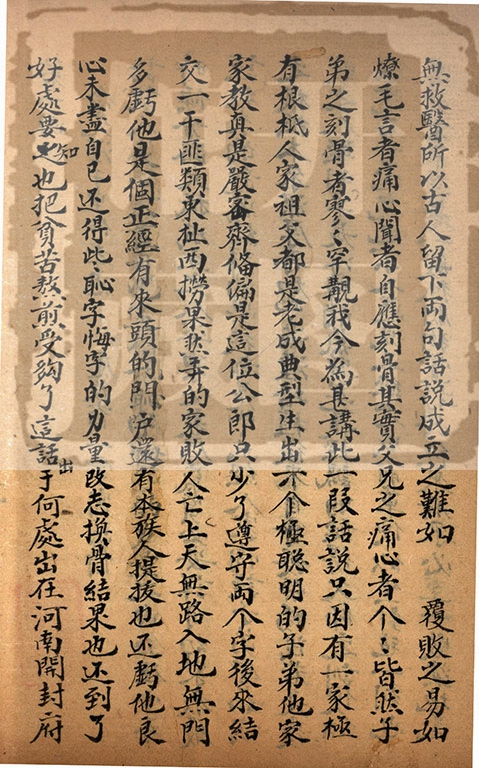 無救醫所以古人留下兩句話說成立之難如　覆敗之易如
燎毛言者痛心聞者自應刻骨其實父兄之痛心者个〻皆然子
弟之刻骨者寥〻罕覯我今為甚講此一叚話說只因有一家極
有根柢人家祖父都是老成典型生出一个極聰明的子弟他家
家教真是嚴密齊備偏是這位公郎只少了遵守两个字後來結
交一干匪類東扯西撈果然弄的家敗人亡上天無路入地無門
多虧他是個正經有來頭的門户還有本族人提拔也还虧他良
心未盡自己还得此恥字悔字的力量改志換骨結果也还到了
好處要之知也把貧苦熬煎受夠了這話出于何處出在河南開封府